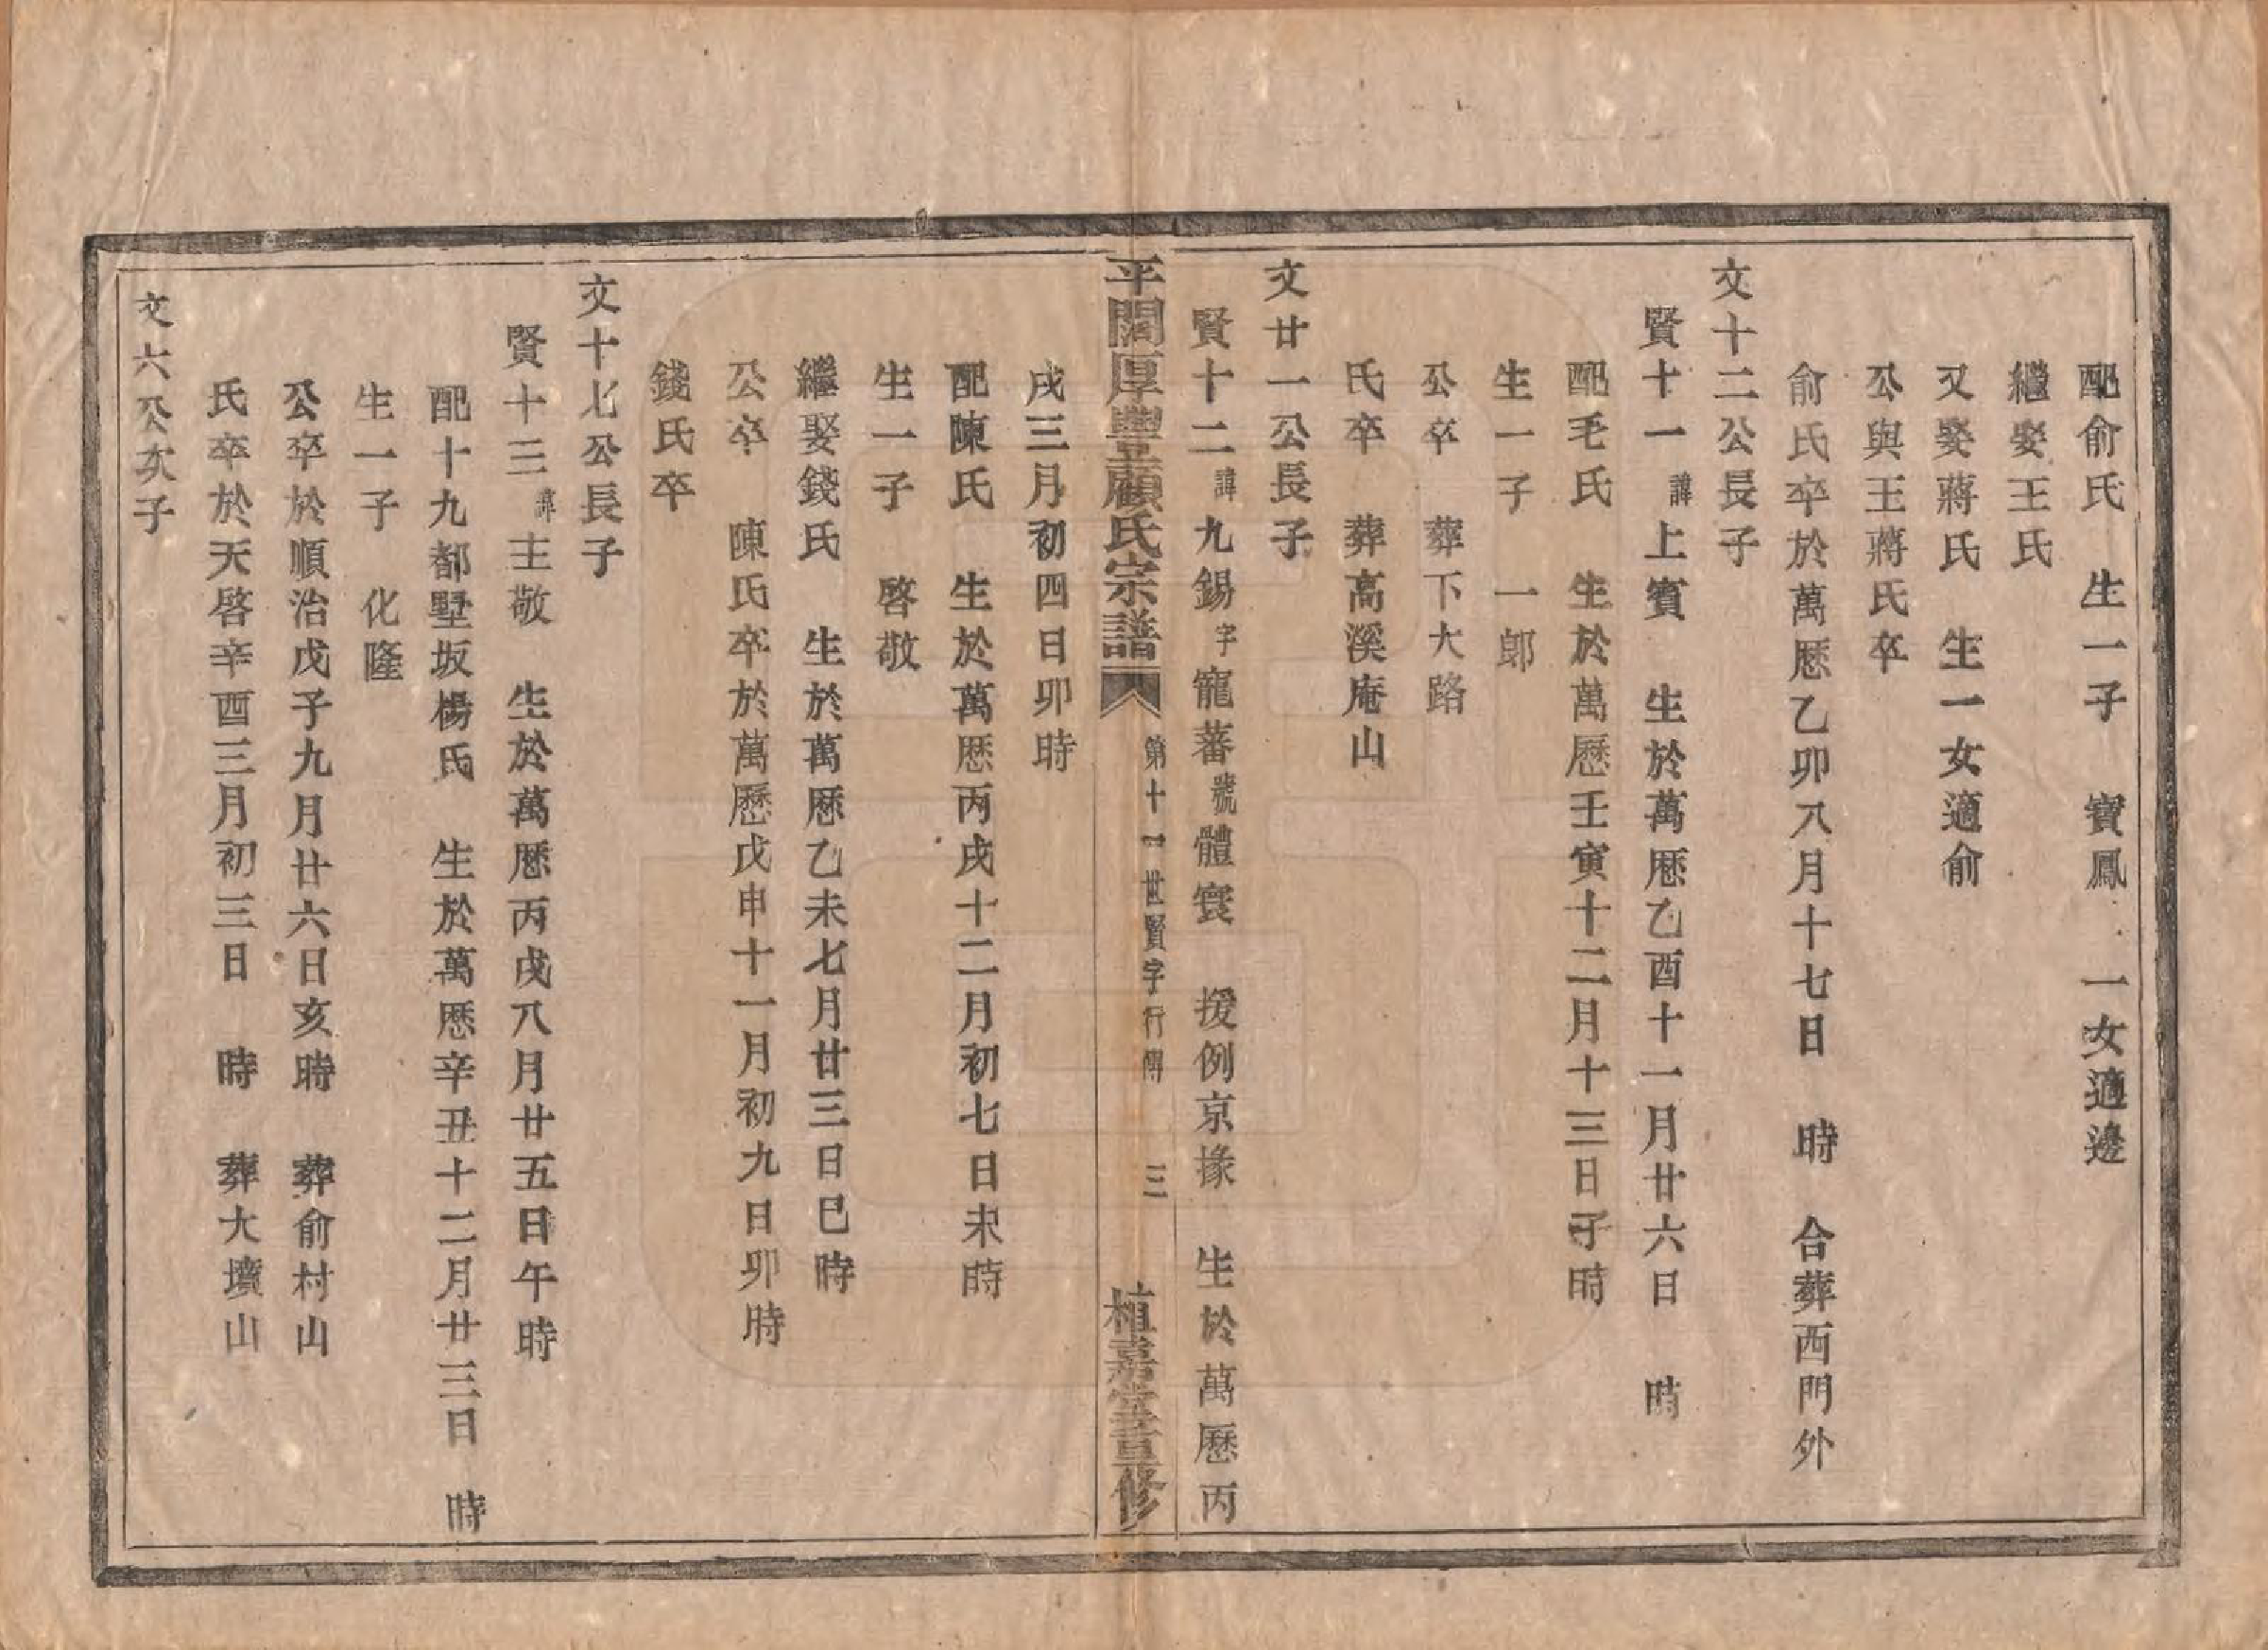 配俞氏　生一子　寶鳳　一女適邊
繼娶王氏
又娶蔣氏　生一女適俞
公與王蔣氏卒
俞氏卒於萬厯乙卯八月十七日　時　合葬西門外
文十二公長子
賢十一諱上賓　生於萬厯乙酉十一月廿六日　時
配毛氏　生於萬厯壬寅十二月十三日子時
生一子　一郎
公卒　葬下大路
氏卒　葬高溪庵山
文廿一公長子
賢十二諱九錫字寵蕃號體寰　援例京掾　生於萬厯丙
平閣厚豐顧氏宗譜　第十一世賢字行傳　三　植嘉堂重修
戌三月初四日卯時
配陳氏　生於萬厯丙戌十二月初七日未時
生一子　啓敬
繼娶錢氏　生於萬厯乙未七月廿三日巳時
公卒　陳氏卒於萬厯戊申十一月初九日卯時
錢氏卒
文十七公長子
賢十三諱主敬　生於萬厯丙戌八月廿五日午時
配十九都墅坂楊氏　生於萬厯辛丑十二月廿三日　時
生一子　化隆
公卒於順治戊子九月廿六日亥時　葬俞村山
氏卒於天啓辛酉三月初三日　時　葬大墳山
文六公次子